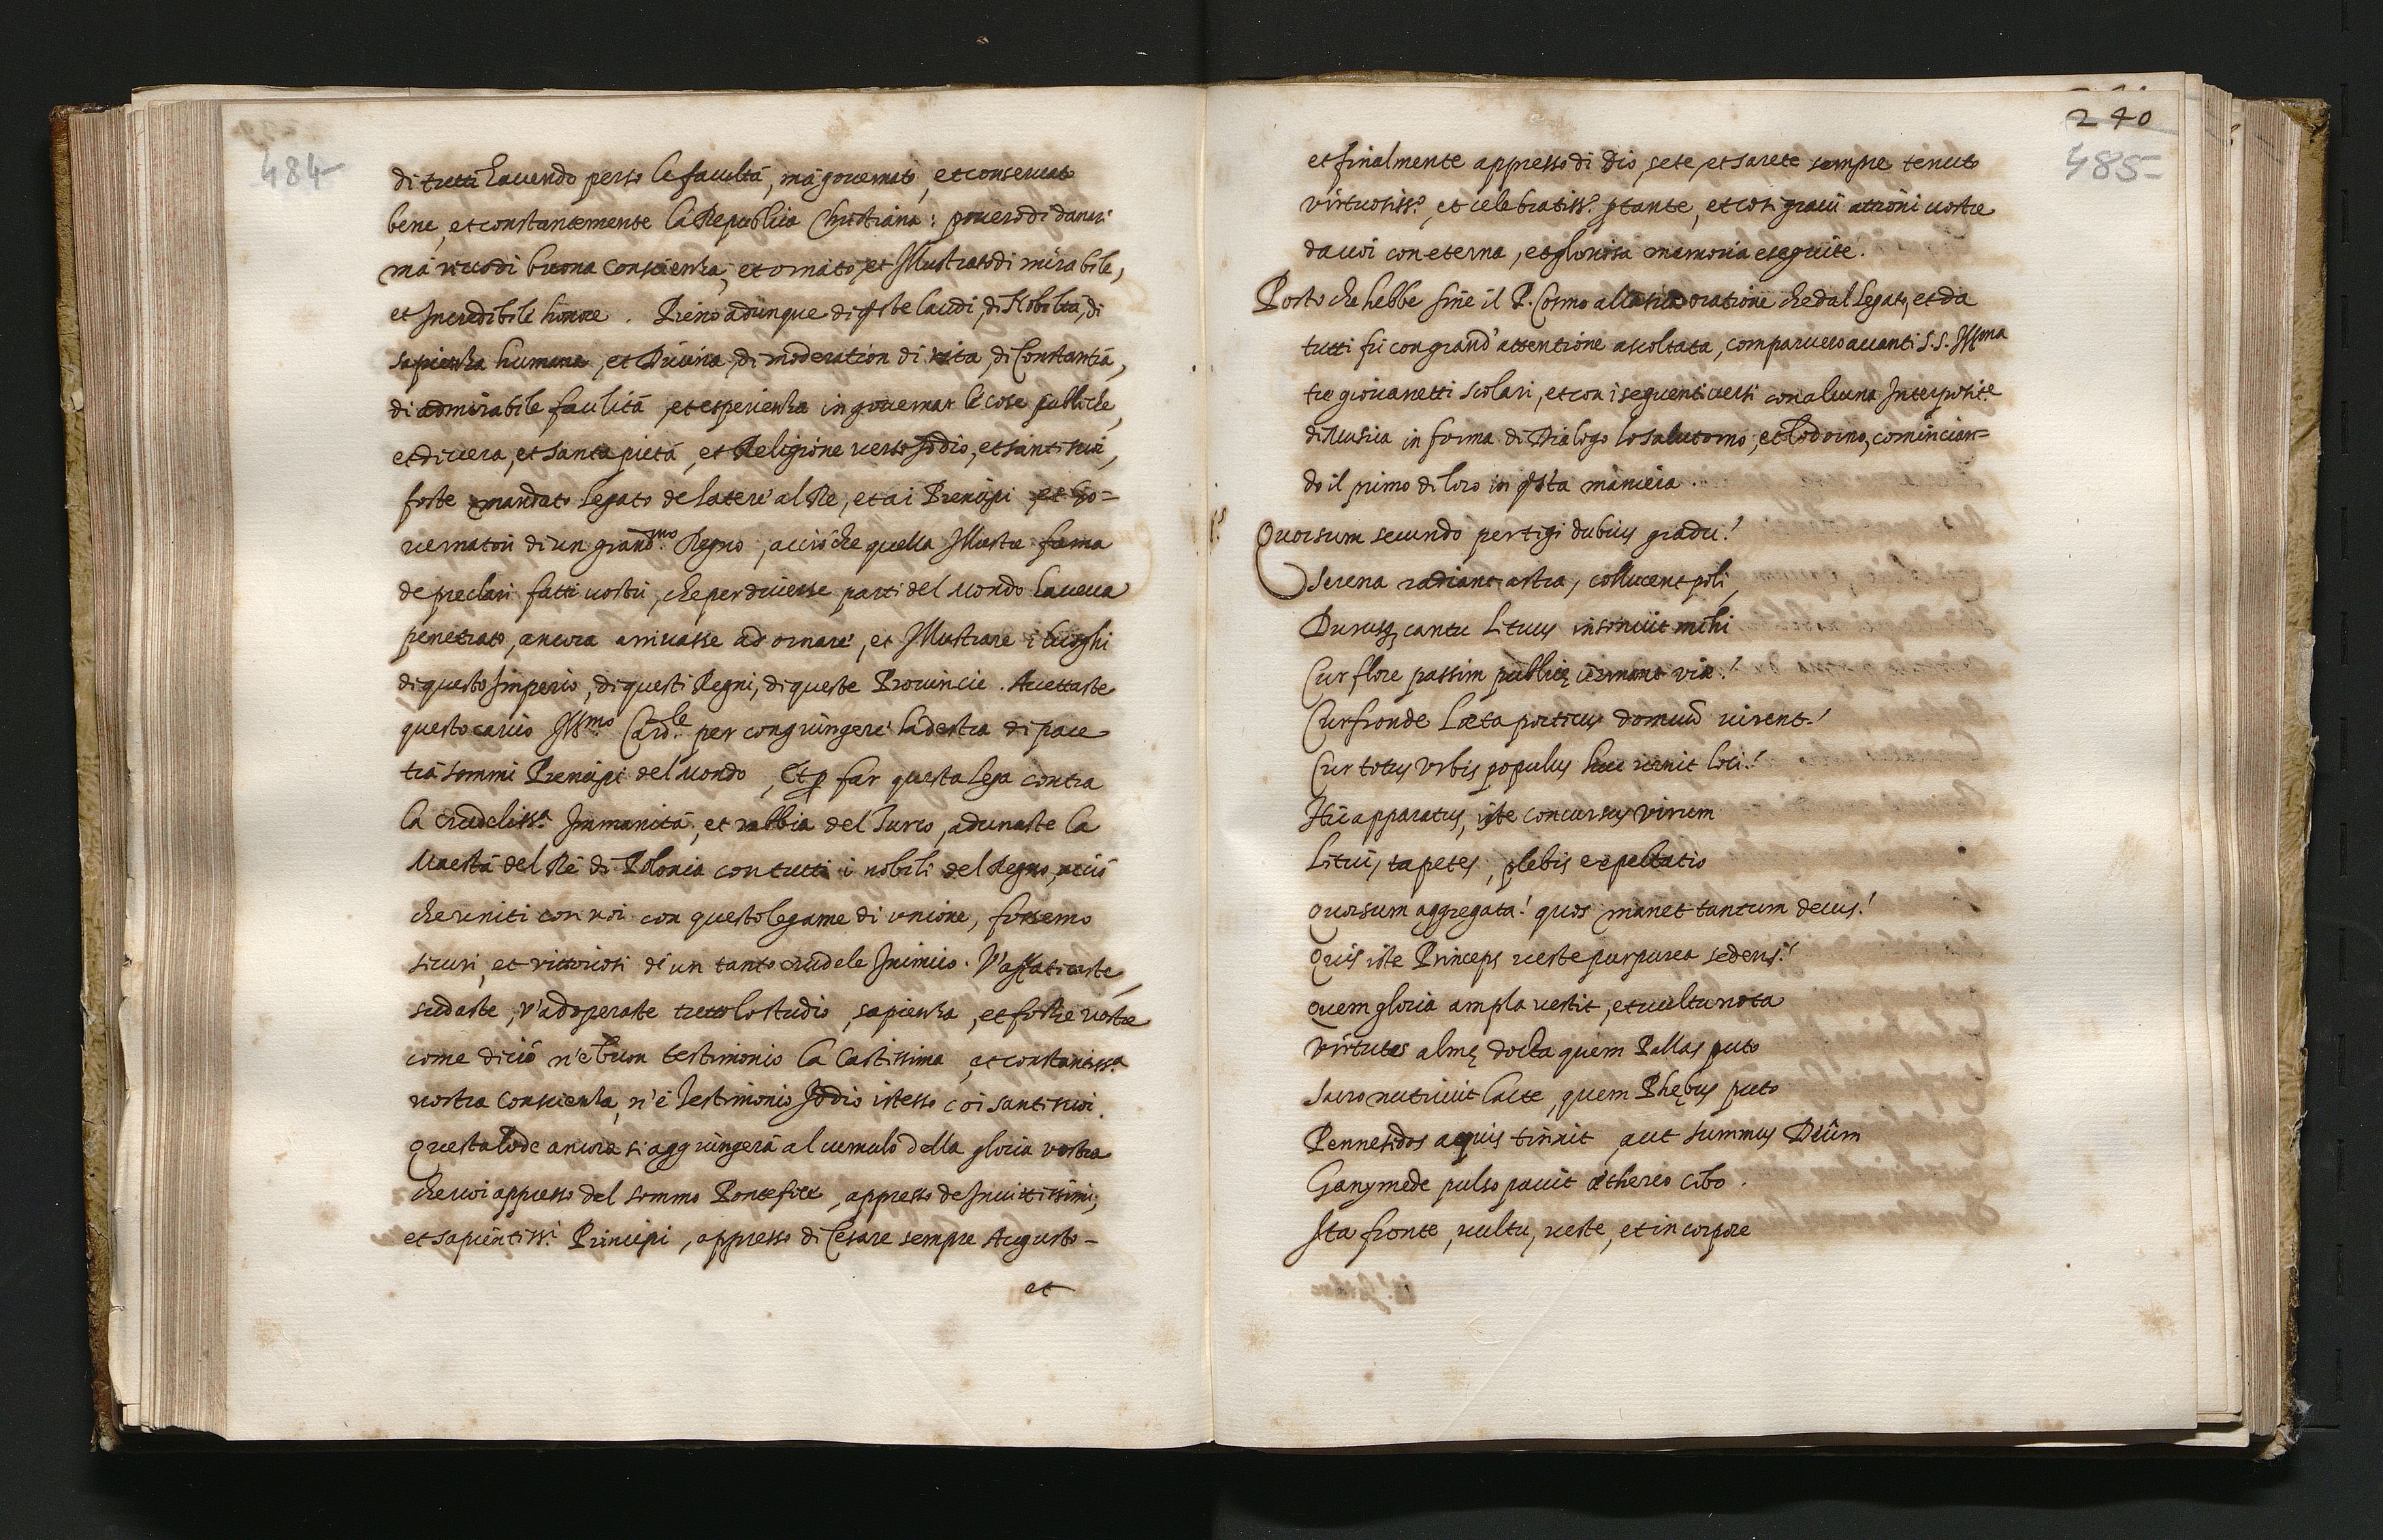 484
di tutti havendo perso le facultà, mà governato, et conservato
bene, et constantemente la Republica Christiana: povero di danari
mà ricco di buona conscienza, et ornato, et Illustrato di mirabile,
et Incredibile honore. Pieno adunque di qste laudi, di Nobiltà, di
sapienza humana, et Divina, di moderation di vita, di Constantia,
di admirabile facilità, et esperienza in governar le cose publiche,
et di vera, et santa pietà, et Religione verso Iddio, et santi suoi,
foste mandato legato de latere al Re, et ai Prencipi et Go=
vernatori di un grandmo Regno, acciò che quella Illustre fama
de preclari fatti vostri, che per diverse parti del mondo haveva
penetrato, ancora arrivasse ad ornare, et Illustrare i luoghi
di questo Imperio, di questi Regni, di queste Provincie. Accettaste
questo carico Illmo Cardle per congiungere la destra di pace
trà sommi Prencipi del mondo, et p far questa lega contra
la crudelissa Immanità, et rabbia del Turco, adunaste la
Maestà del Rè di Polonia con tutti i nobili del Regno, acciò
che uniti con voi con questo legame di unione, fossemo
sicuri, et vittoriosi di un tanto crudele Inimico. V'affaticaste,
sudaste, v'adoperaste tutto lo studio, sapienza, et forze vostre
come di ciò n'è buon testimonio la Castissima, et constantissa
vostra conscienza, n'è testimonio Iddio istesso coi santi suoi.
questa lode ancora si aggiungerà al cumulo della gloria vostra
che voi appresso del sommo Pontefice, appresso de Invittissimi,
et sapientissi Principi, appresso di Cesare sempre Augusto-
et
240
485=
et finalmente appresso di dio, sete, et sarete sempre tenuto
virtuosisso, et celebratisso. ptante, et così gravi attioni vostre
da voi con eterna, et gloriosa memoria eseguite.
Posto che hebbe fine il P. Cosmo alla sua oratione che dal Legato, et da
tutti fù con grand' attentione ascoltata, comparvero avanti S. S. Illma
tre giovanetti scolari, et con i seguenti versi con alcuna Interposite
di Musica in forma di Dialogo lo salutorno, et lodorno, comincian=
do il primo di loro in qsta maniera.
Po. Quorsum secundo pertigi dubius gradu!
Serena radiant astra, collucent poli,
Durusq cantu Lituus insonuit mihi
Cur flore passim publicę cernant viæ!
Cur fronde læta porticus domuũ virent!
Cur totus Urbis populus huc venit loci!
Hic apparatus, iste concursus virum
Litui, tapetes, plebis expectatio
quorsum aggregata! quos manet tantum decus!
Quis iste Princeps veste purpurea sedens!
quem gloria ampla vestit, et vultu nota
virtutes almę docta quem Pallas puto
Sacro nutrivit lacte, quem Phębus puto
Permesidos aquis tinxit, aut summus Deûm
Ganymede pulso pavit æthereo cibo.
Ita fronte, vultu, veste, et in corpore